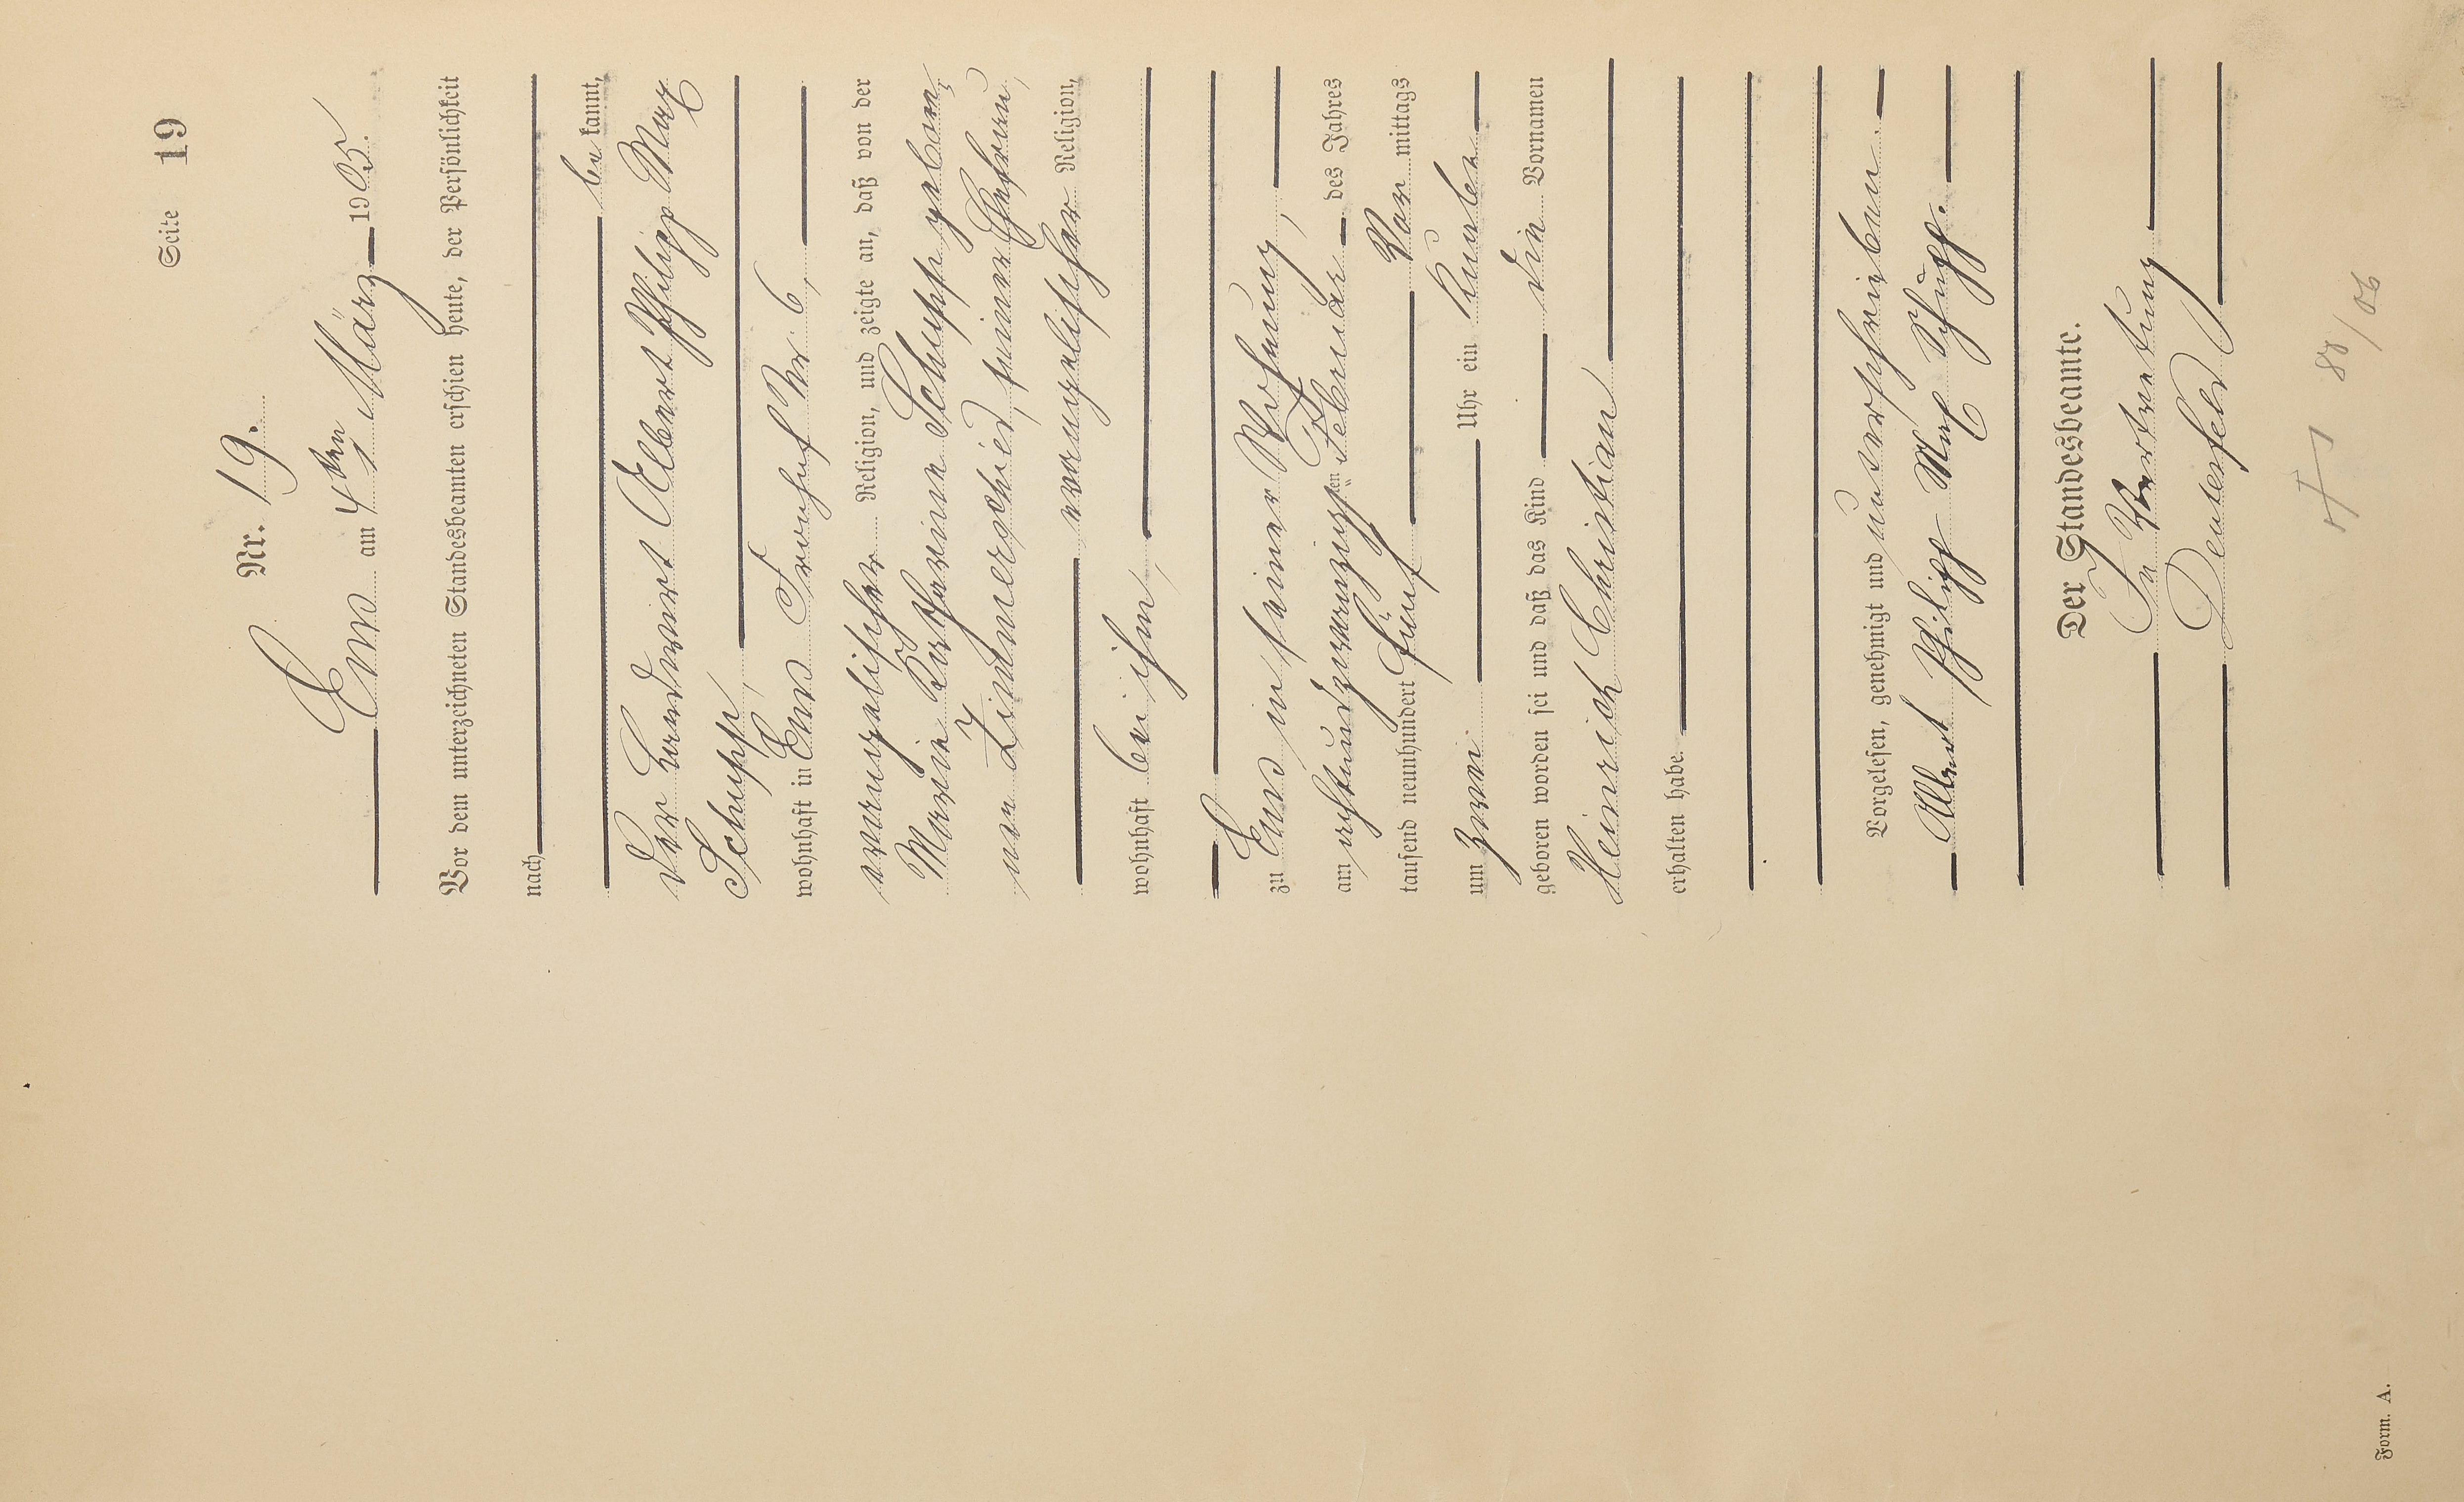 Seite 19
Nr. 19.
Ems am 4ten März 1905.
Vor dem unterzeichneten Standesbeamten erschien heute, der Persönlichkeit
nach
be kannt,
der Landwirt Albert Philipp Max
Schupp,
wohnhaft in Ems Nr. 6,
evangelischer Religion, und zeigte an, daß von der
Marie Katharine Schupp gebore-
nen Zindmerschied, seiner Ehefrau,
evangelischer Religion,
wohnhaft bei ihm,
zu Ems in seiner Wohnung,
am achtundzwanzigsten Februar des Jahres
tausend neunhundert fünf Vor mittags
um zwei Uhr ein Knabe
geboren worden sei und daß das Kind die Vornamen
Heinrich Christian
erhalten habe.
Vorgelesen, genehmigt und unterschrieben.
Albert Philipp Max Schupp.
Der Standesbeamte.
In Vertretung
Deusenfeld
88/06
Form. A.